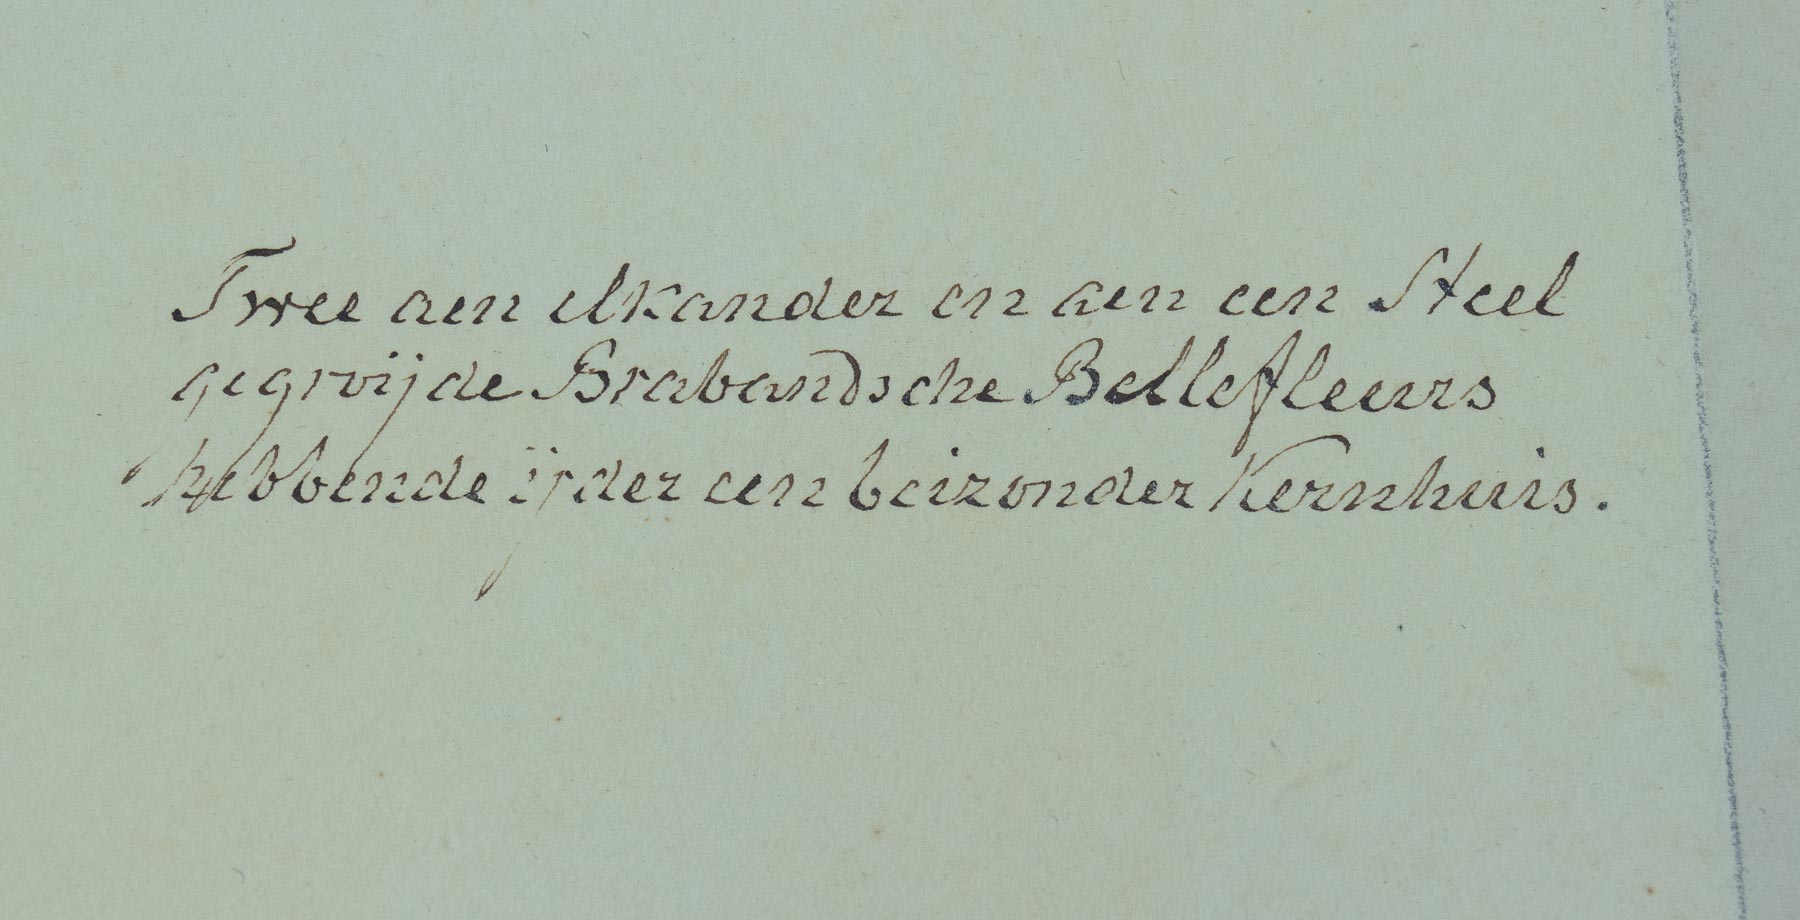 Twee aen elkander en aen een Steel
gegroijde Brabandsche Bellefleurs
hebbende ijder een beizonder Kernhuis.